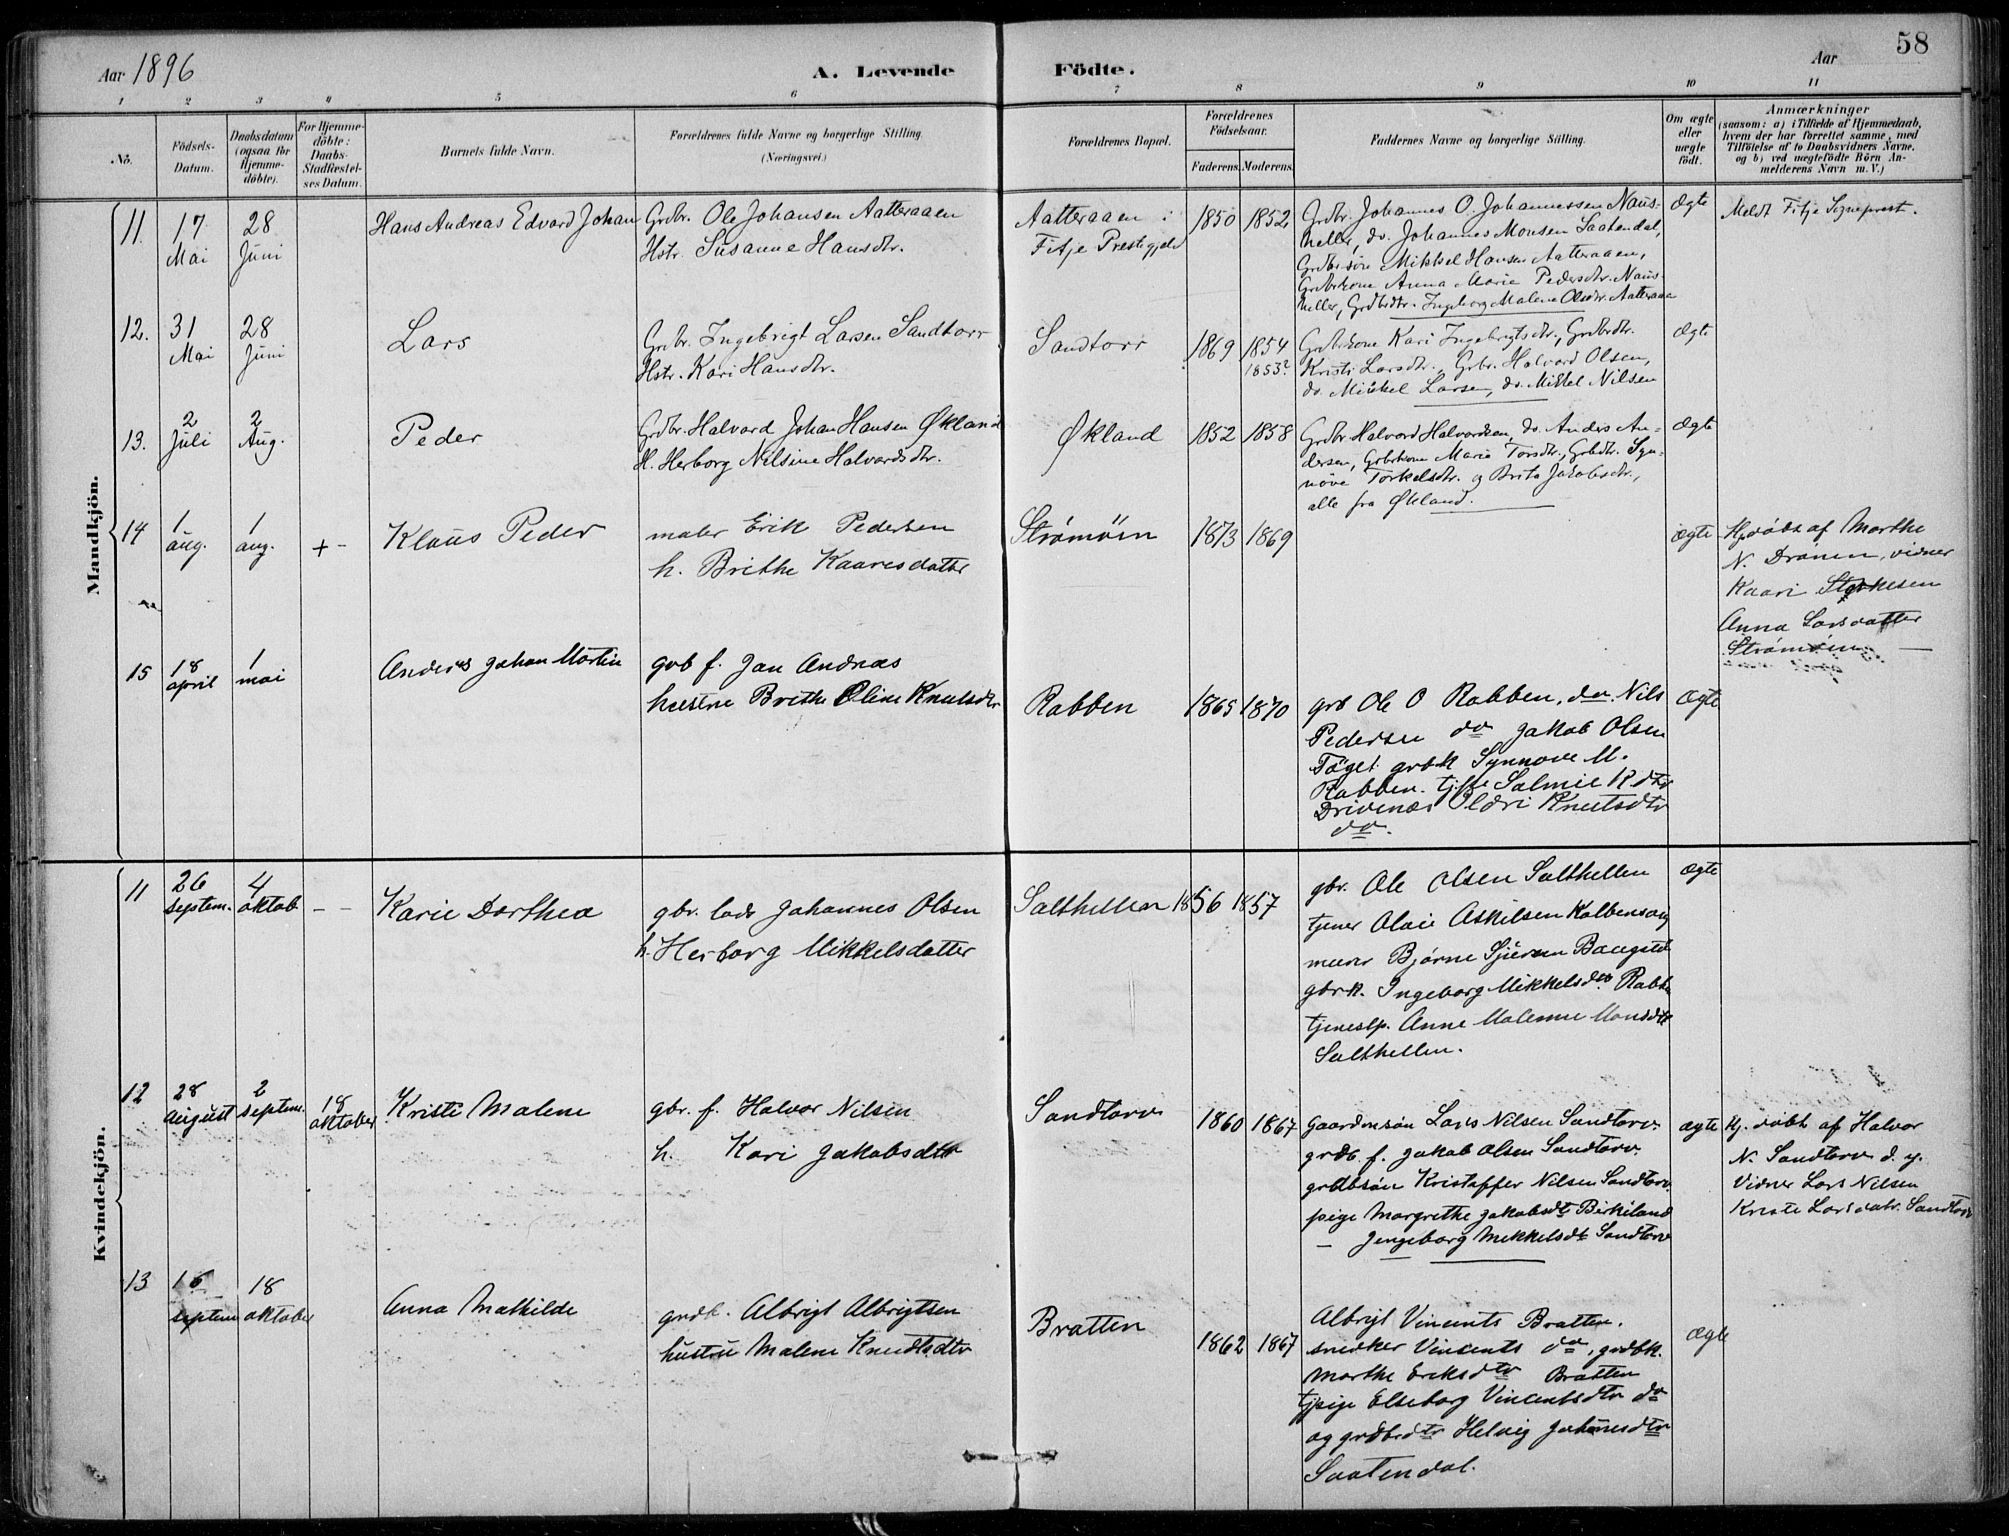 Aar 1896 A. Levende Födte. Aar 58
1 2 3 4 5 6 7 8 9 10 11
No.
Födsels-
Datum.
Daabsdatum
(ogsaa for
Hjemme-
döbte).
For Hjemme-
döbte:
Daabs-
Stadfæstel-
ses Datum.
Barnets fulde Navn.
Forældrenes fulde Navne og borgerlige Stilling.
(Næringsvei.)
Forældrenes Bopæl.
Forældrenes
Födselsaar.
Faderens. Moderens.
Faddernes Navne og borgerlige Stilling.
Om ægte
eller
uægte
födt.
Anmærkninger
(saasom: a) i Tilfælde af Hjemmedaab,
hvem der har forrettet samme, med
Tilföielse af to Daabsvidners Navne,
og b) ved uægtefödte Börn An-
melderens Navn m. V.)
Mandkjön.
11. 17 Mai 28 Juni Hans Andreas Edvard Johan
Grdbr. Ole Johansen Aatteraaen
Hstr. Susanne Hansdtr.
Aatteraaen i
Fitje Prestegjeld
1850 1852
Grdbr. Johannes O. Johannessen Naus-
heller, do. Johannes Monsen Saatendal,
Grdbrsön Mikkel Hansen Aatteraaen,
Grdbrkone Anna Marie Pedersdtr. Naus-
heller, Grdbrdtr. Ingeborg Malene Olsdtr. Aatteraaen
Ægte
Meldt Fitje Sogneprest.
12. 31 Mai 28 Juni Lars
Grdbr. Ingebrigt Larsen Sandtorv
Hstr. Kari Hansdtr.
Sandtorv
1869 1854
1853?
Grdbrkone Kari Ingebrigtsdtr., Grdbrdtr.
Kristi Larsdtr., Grbr. Halvard Olsen,
do. Mikkel Larsen, do. Mikkel Nilsen
Ægte
13. 2 Juli 2 Aug. Peder
Grdbr. Halvard Johan Hansen Økland
H. Herborg Nilsine Halvardsdtr.
Økland
1852 1858
Grdbr. Halvard Halvardsen, do. Anders An-
dersen, Grbrkone Marie Torsdtr., Grbdtr. Syn-
növe Torkelsdtr. og Brita Jakobsdtr.,
alle fra Økland.
Ægte
14 1 aug. 1 aug. + - Klaus Peder
maler Erik Pedersen
h. Brithe Kaaresdatter
Strømøen
1873 1869
ægte
Hj.döbt af Marthe
N. Drönen, vidner
Kaari Styrkesen
Anna Larsdatter
Strømøen
15 18 april 1 mai Anders Johan Martin
grb f. Jan Andreas
hustru Brithe Oline Knutsdtr
Rabben
1865 1870
grb Ole O Rabben, do. Nils
Pedersen do Jakob Olsen
grbk Synnove M.
Rabben. Salmie K dtr
Drivenæs Oldri Knutsdtr
do.
Ægte
Kvindekjön.
11 26 septem. 4 oktob - - Karie Dorthea
gbr. lods Johannes Olsen
h. Herborg Mikkelsdatter
Salthellen 1856 1857
gbr. Ole Olsen Salthellen
tjener Olai Askilsen Kolbensvig
murer Bjørne Bangsted
gbrk. Ingeborg Mikkelsdtr Rabben
tjenesp. Anne Malenne Monsdtr
Salthellen.
Ægte
12 28 august 2 septem. 18 oktober Kristi Malene
gbr. f. Halvor Nilsen
h. Kari Jakobsdtr
Sandtorv
1860 1867
Gaardmsön Lars Nilsen Sandtorv.
grdb. f. Jakob Olsen Sandtorv.
grdbsön Kristoffer Nilsen Sandtorv.
pige Margrethe Jakobsdt Birkeland
— Jengeborg Mekkelsdt Sandtorv
ægte
Hj. döbt af Halvor
N. Sandtorv d. y.
Vidner Lars Nilsen
Kriste Larsdatr. Sandtorv
13 16 septem 18 oktober Anna Mathilde
grdb. Albrigt Albrigtsen
hustru Malene Knudtsdtr
Bratten
1862 1867
Albrigt Vincents Bratten.
snedker Vincents do, grdbk.
Marthe Eriksdtr Bratten
tjpige Elseborg Vincentsdtr do
og grdbrdtr Helvig Johanesdtr
Saatendal.
Ægte